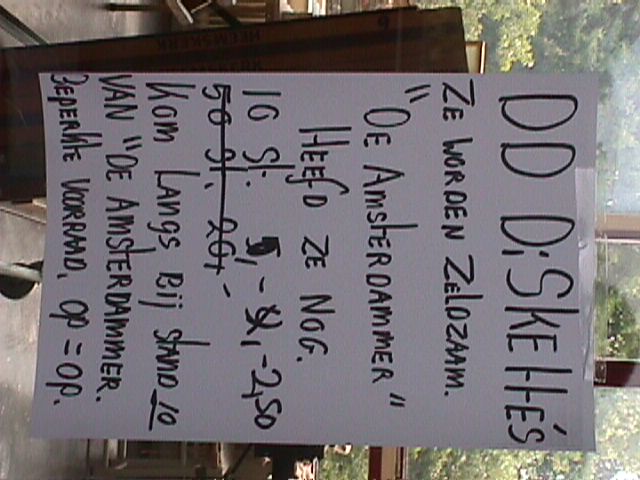 DD DiSKEttE'S
ZE WORDEN ZELDZAAM.
"DE AmstERDAMMER"
HEEfD ZE NOG.
10 St. 5,- 4,- 2,50
50 St. 20,-
KOM LANGS Bij StAND 10
VAN "DE AMStERDAMMER.
BEPERKtE VOORRAAD, OP = OP.
HEEMSKERK